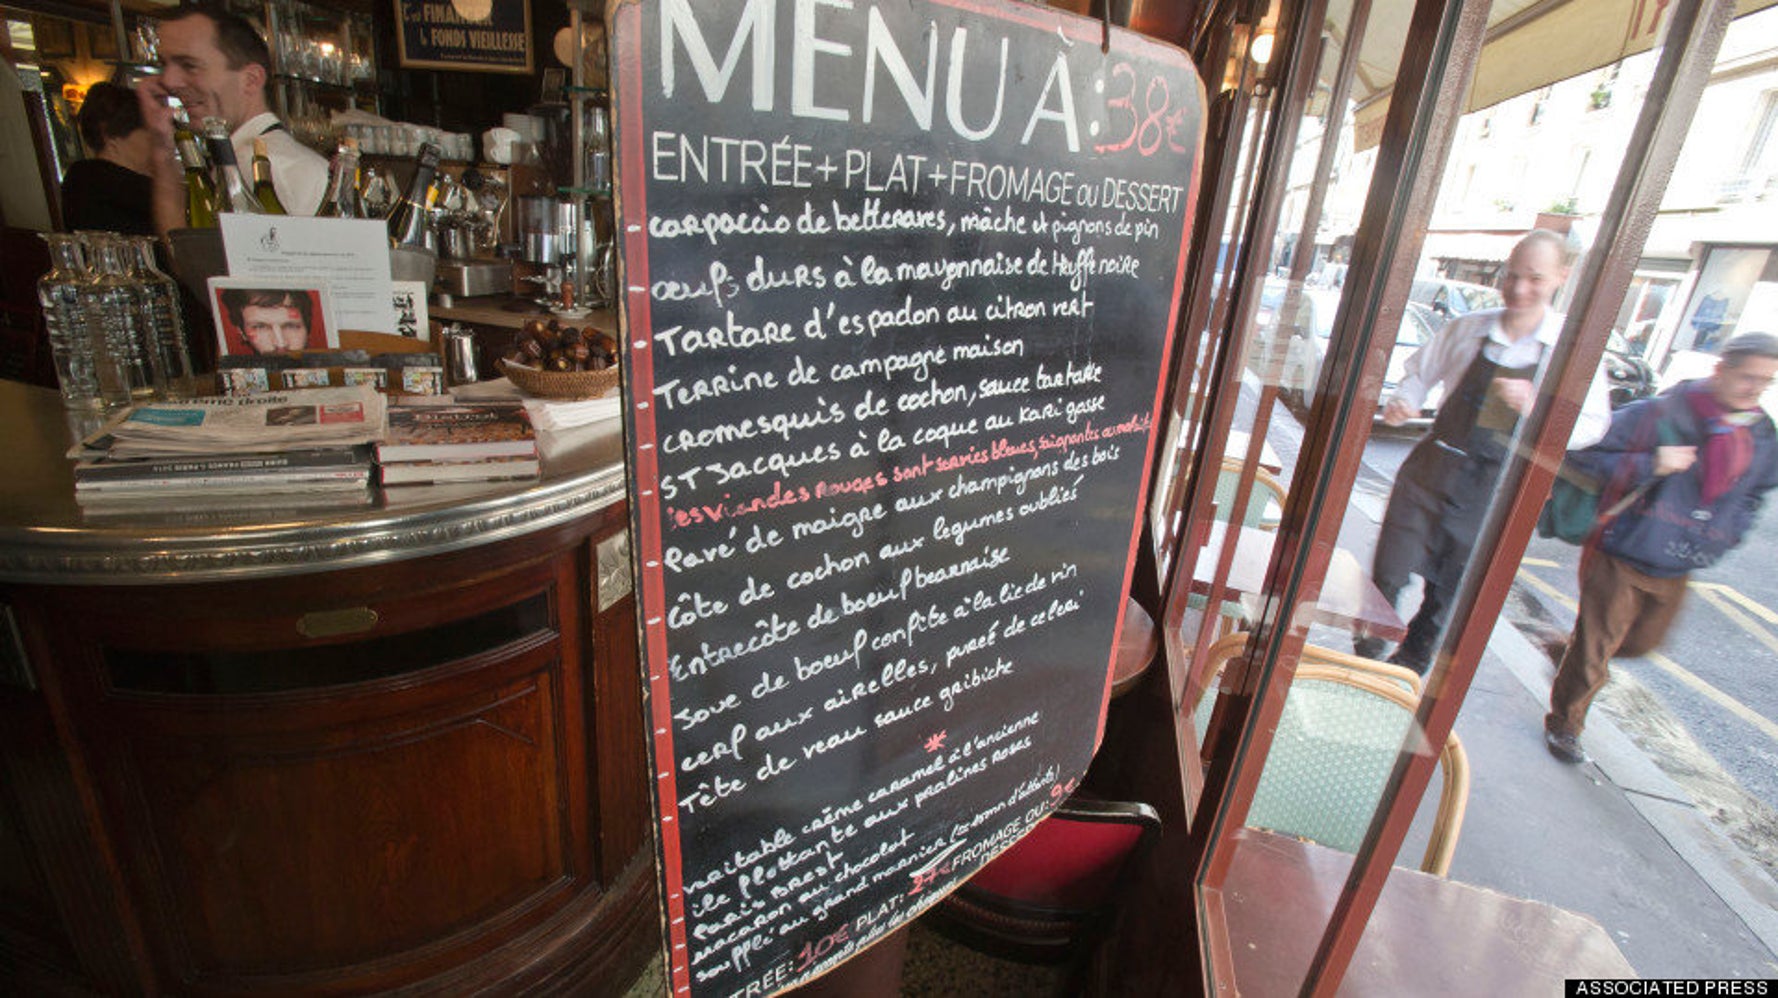 FINANCIER
FONDS VIEILLESSE
MENU À : 38€
ENTRÉE + PLAT + FROMAGE ou DESSERT
- carpaccio de betteraves, mâche et pignons de pin
- œufs durs à la mayonnaise de truffe noire
- Tartare d'espadon au citron vert
- Terrine de campagne maison
- cromesquis de cochon, sauce tartare
- ST Jacques à la coque au Kari gosse
les viandes rouges sont servies bleues, saignantes ou
- Pavé de maigre aux champignons des bois
- côte de cochon aux légumes oubliés
- Entrecôte de boeuf bearnaise
- Joue de boeuf confite à la lie de vin
- cerf aux airelles, pureé de celeri
- Tête de veau sauce gribiche
*
- veritable crème caramel à l'ancienne
- ile flottante aux pralines roses
- Paris Brest
- macaron au chocolat
- soufflé au grand marnier (20 min d'attente)
TRÉE: 10€ PLAT: 27€ FROMAGE OU: 9€
DESSERT
ASSOCIATED PRESS